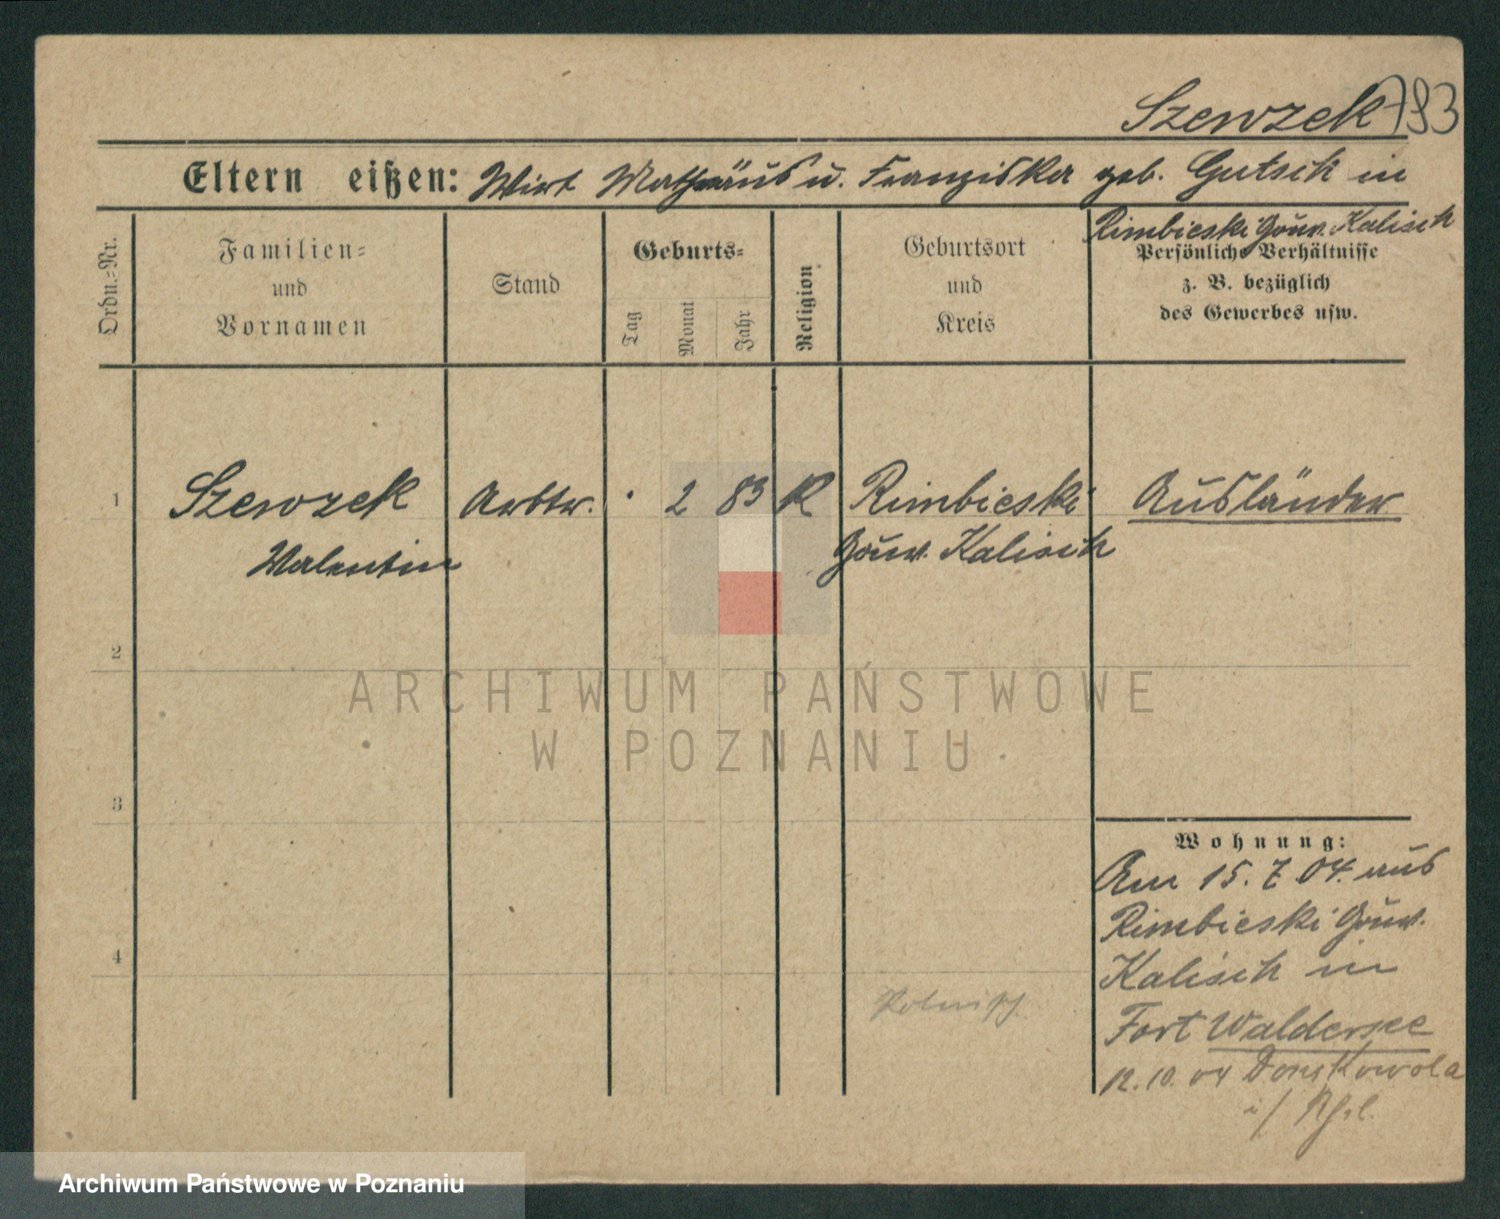 Szewzek 793
Eltern eißen: Wirt Mathäus u. Franziska geb. Gutsch in
Rimbieski Gouv. Kalisch
Ordn.-Nr.
Familien- und Vornamen
Stand
Geburts-
Tag
Monat
Jahr
Religion
Geburtsort und Kreis
Persönliche Verhältnisse
z. B. bezüglich
des Gewerbes usw.
1 Szewzek Arbtr. . 2 83 K Rimbieski Ausländer
Valentin Gouv. Kalisch
2
ARCHIWUM PAŃSTWOWE
W POZNANIU
3
Wohnung:
Am 15. 7. 04. aus
Rimbieski Gouv.
4
Kalisch in
Polnisch
Fort Waldersee
12. 10. 04
Archiwum Państwowe w Poznaniu